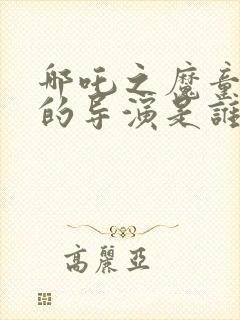 哪吒之魔童
的导演是誰
高麗亞